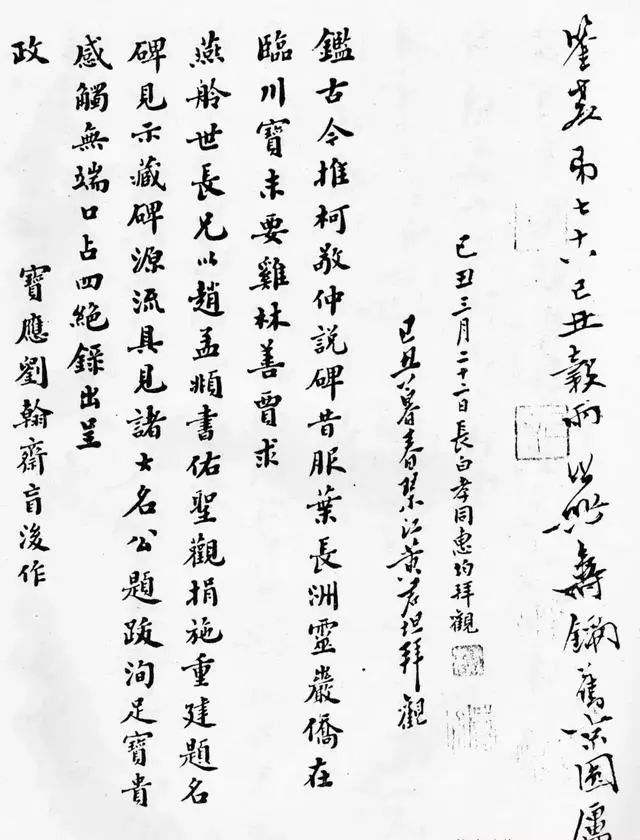 弟七十八己丑穀雨 壽鏞舊京
己丑三月二十二日長白孝同惠均拜觀
己丑暮春琴江黃君坦拜觀
鑑古今推柯敬仲説碑昔服葉長洲靈巖僑在
臨川寶未要雞林善賈求
燕舲世長兄以趙孟頫書佑聖觀捐施重建題名
碑見示藏碑源流具見諸大名公題跋洵足寶貴
感觸無端口占四絕錄出呈
政 寶應劉翰齋盲後作